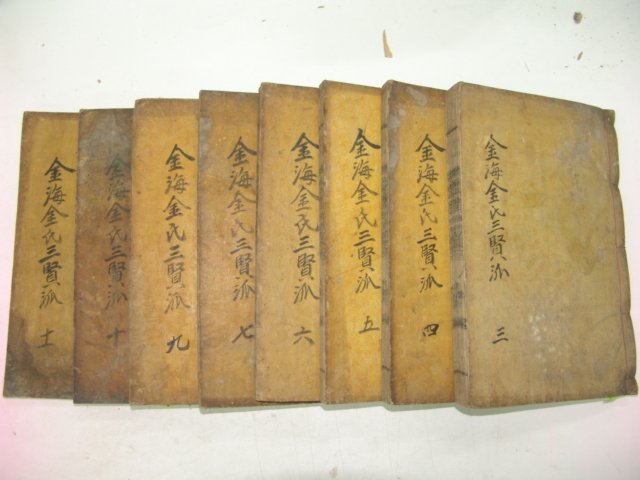 金海金氏三賢派 三
金海金氏三賢派 四
金海金氏三賢派 五
金海金氏三賢派 六
金海金氏三賢派 七
金海金氏三賢派 九
金海金氏三賢派 十
金海金氏三賢派 十一